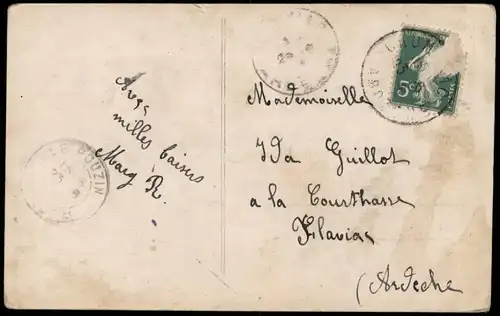 Avec
milles baisers
Marg R.
LE POUZIN
5c
Mademoiselle
Ida Guillot
a la Courthasse
Flaviac
(Ardèche